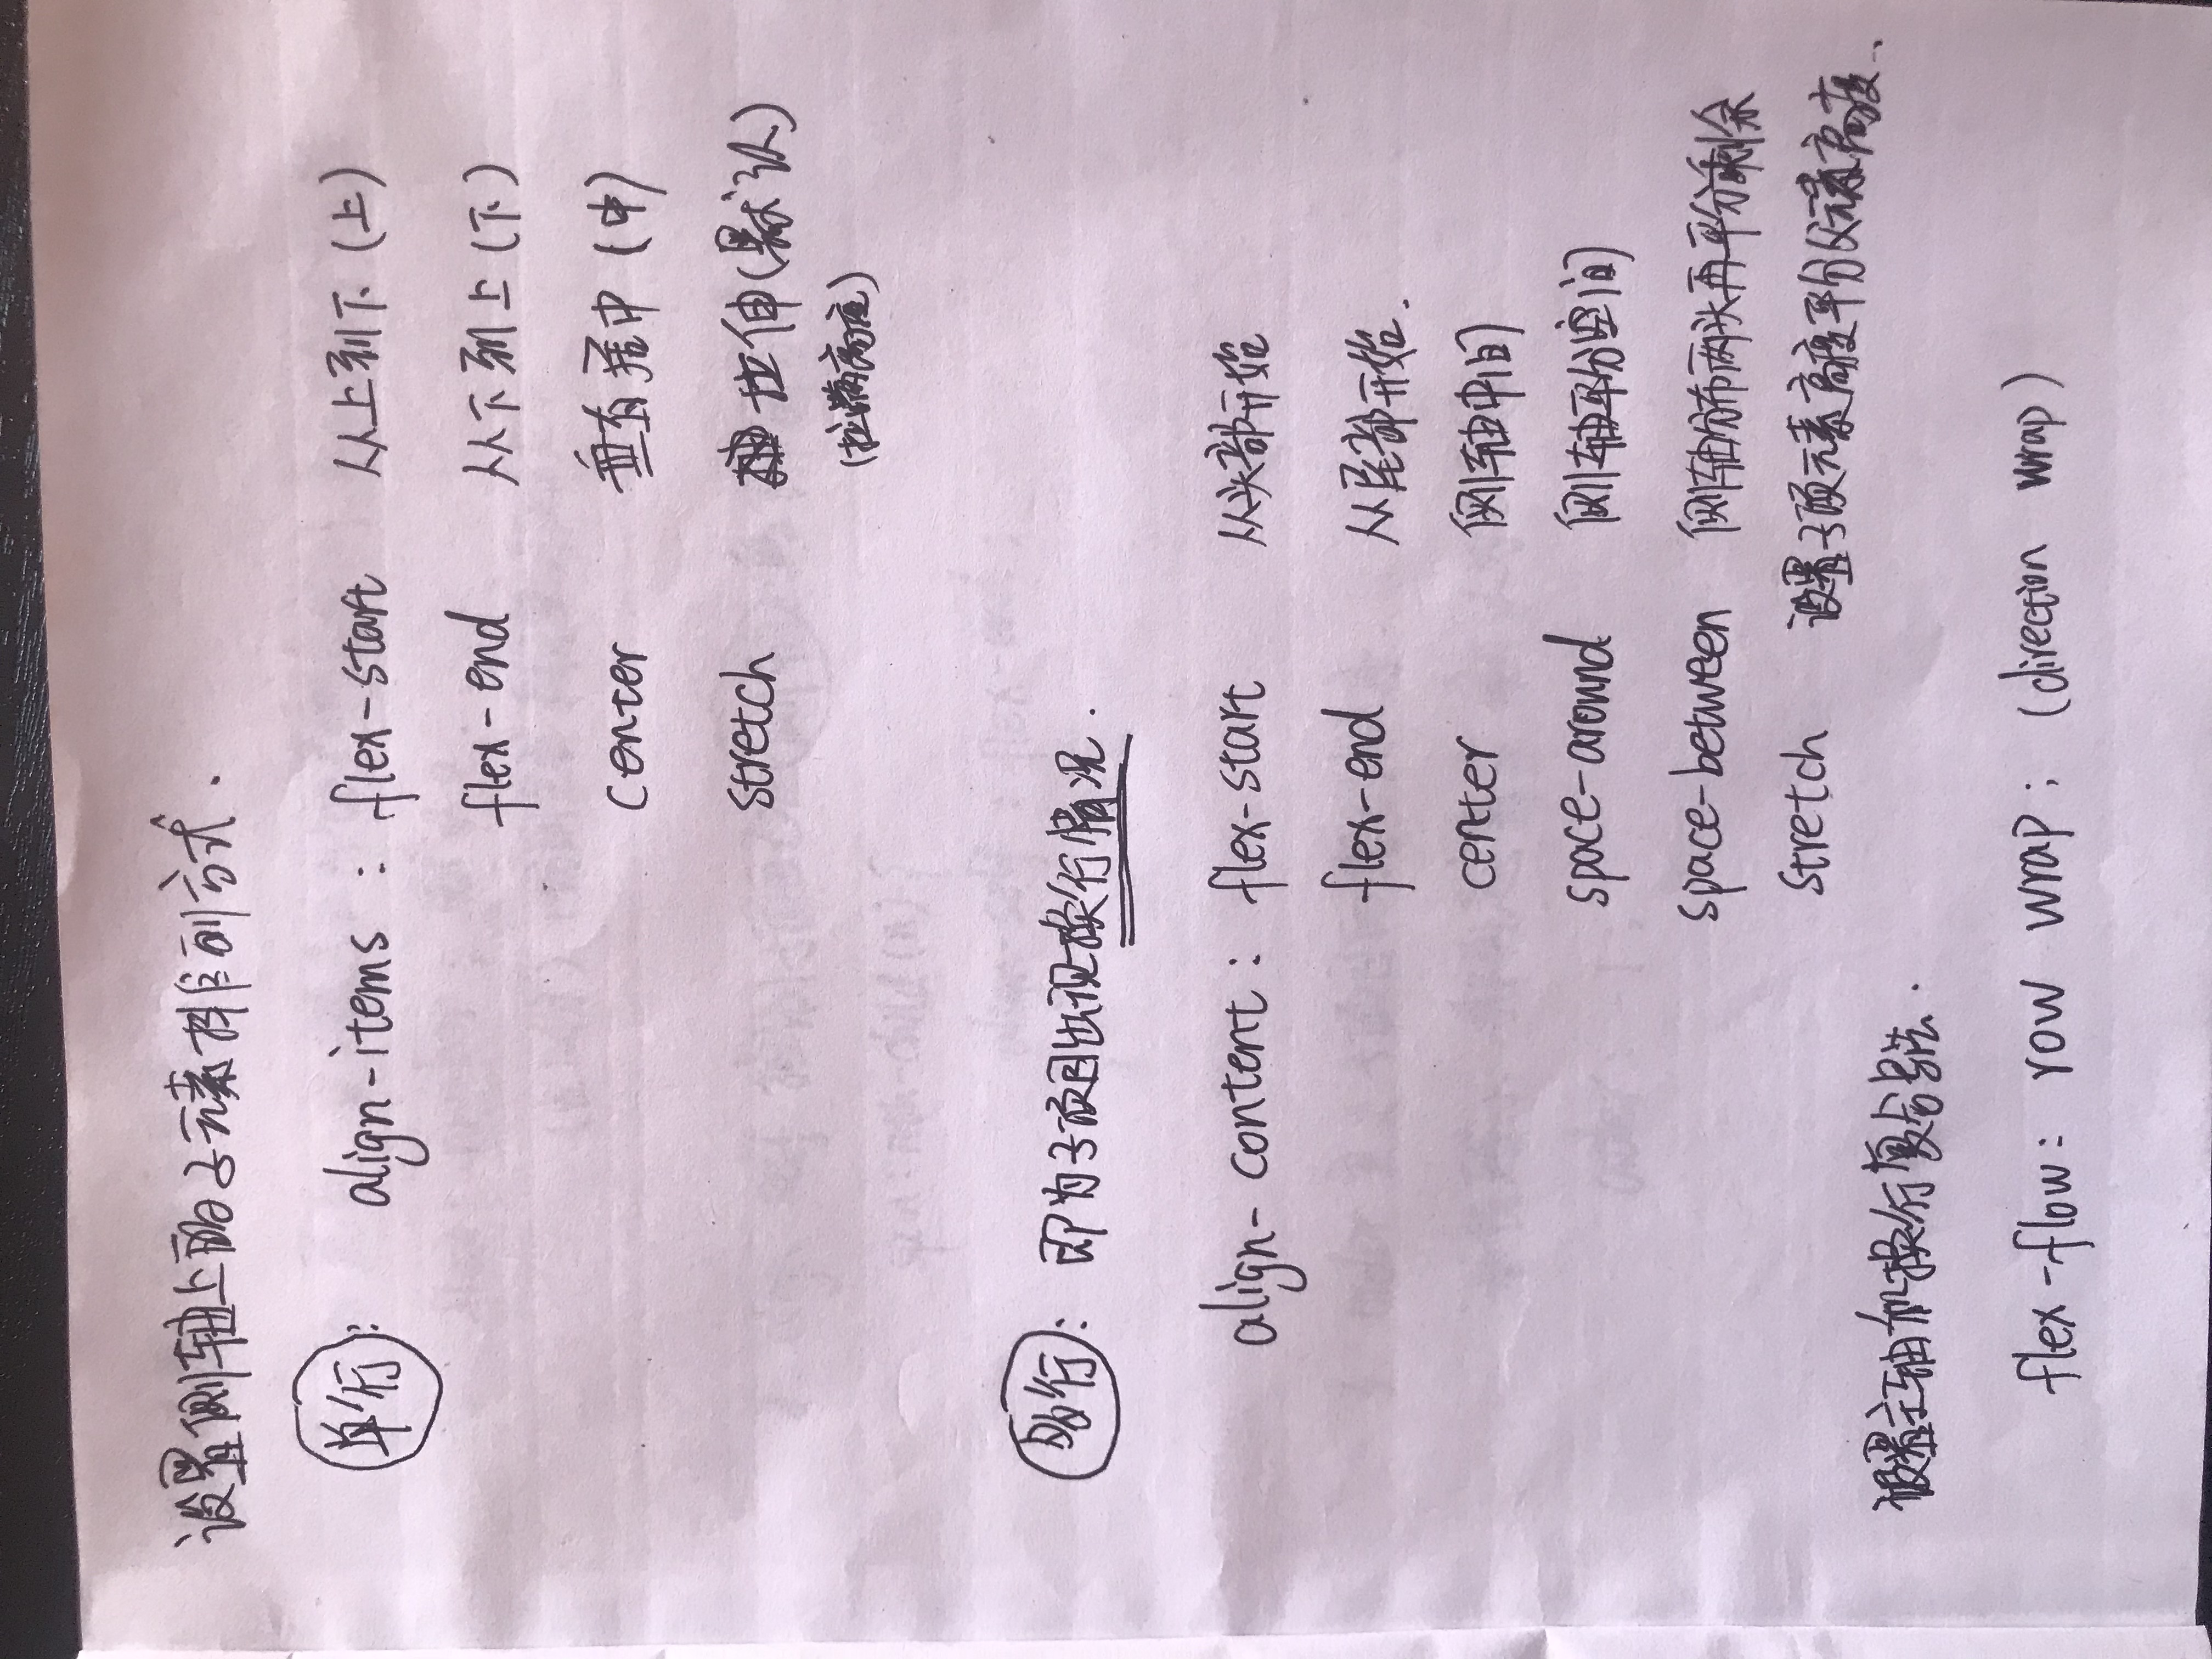 设置侧轴上的子元素排列方式.
单行: align-items : flex-start 从上到下 (上)
flex-end 从下到上 (下)
center 垂直居中 (中)
stretch 拉伸 (默认)
(拉满高度)
多行: 即为子项目出现换行情况.
align-content : flex-start 从头部开始
flex-end 从尾部开始.
center 侧轴中间
space-around 侧轴平分空间
space-between 侧轴分布两头再平分剩余
stretch 设置子项元素高度平分父元素高度.
设置主轴和换行复合写法.
flex-flow: row wrap; (direction wrap)